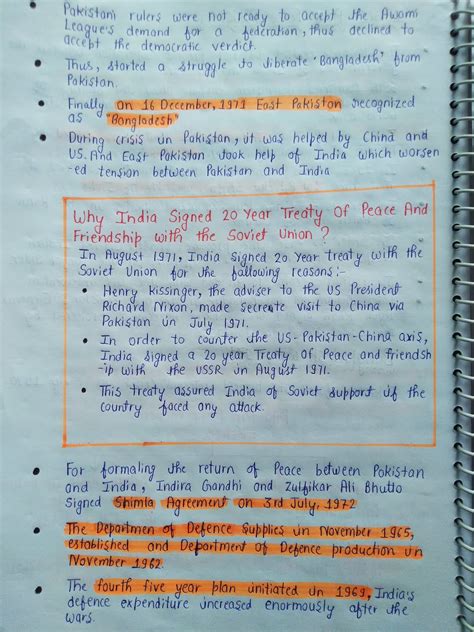 Pakistani rulers were not ready to accept the Awami
League's demand for a federation, thus declined to
accept the democratic verdict.
• Thus, started a struggle to liberate 'Bangladesh' from
Pakistan.
• Finally on 16 December, 1971 East Pakistan recognized
as "Bangladesh"
• During crisis in Pakistan, it was helped by China and
US. And East Pakistan took help of India which worsen
-ed tension between Pakistan and India
Why India Signed 20 Year Treaty Of Peace And
Friendship with the Soviet Union ?
In August 1971, India signed 20 year treaty with the
Soviet Union for the following reasons :-
• Henry Kissinger, the adviser to the US President
Richard Nixon, made secreate visit to China via
Pakistan in July 1971.
• In order to counter the US-Pakistan-China axis,
India signed a 20 year Treaty Of Peace and friendsh
-ip with the USSR in August 1971.
• This treaty assured India of Soviet support if the
country faced any attack.
• For formaling the return of Peace between Pakistan
and India, Indira Gandhi and Zulfikar Ali Bhutto
Signed Shimla Agreement on 3rd July, 1972
• The Departmen of Defence Supplies in November 1965,
established and Department of Defence production in
November 1962.
• The fourth five year plan initiated in 1969, India's
defence expenditure increased enormously after the
wars.